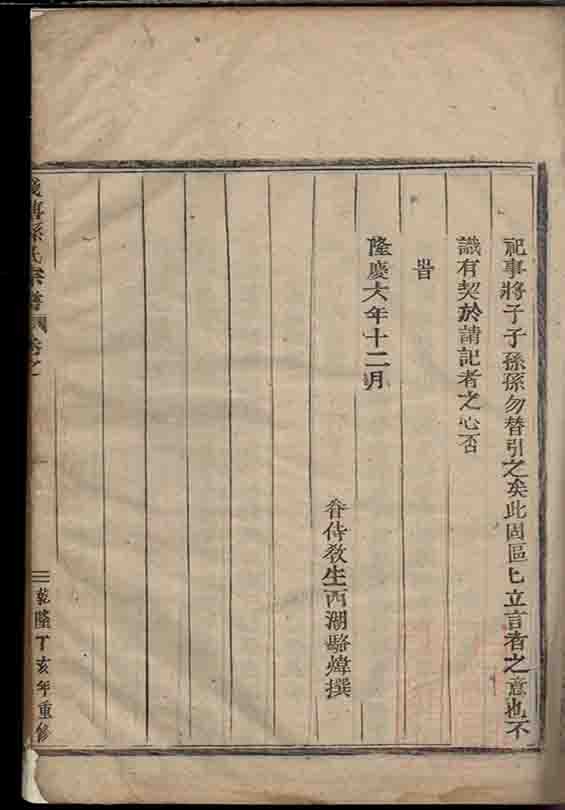 祀事將子子孫孫勿替引之矣此固區匕立言者之意也不
識有契於請記者之心否
旹
隆慶六年十二月
眷侍教生西湖駱煒撰
孫氏宗譜 卷之
乾隆丁亥年重修